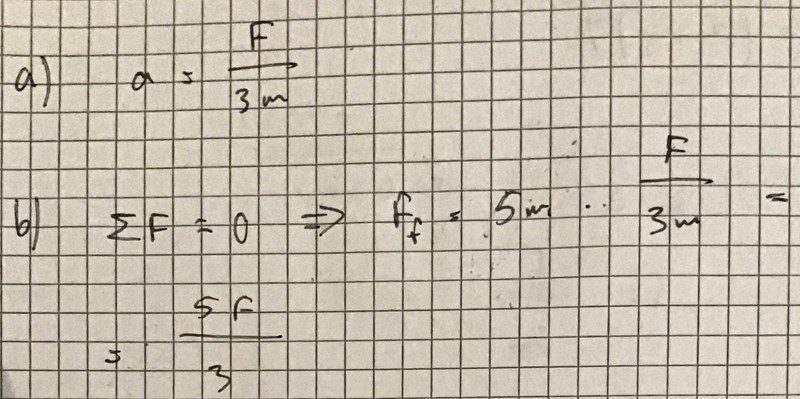 a) a = F/3m
b) ΣF = 0 ⇒ F_f = 5m · F/3m =
= 5F/3